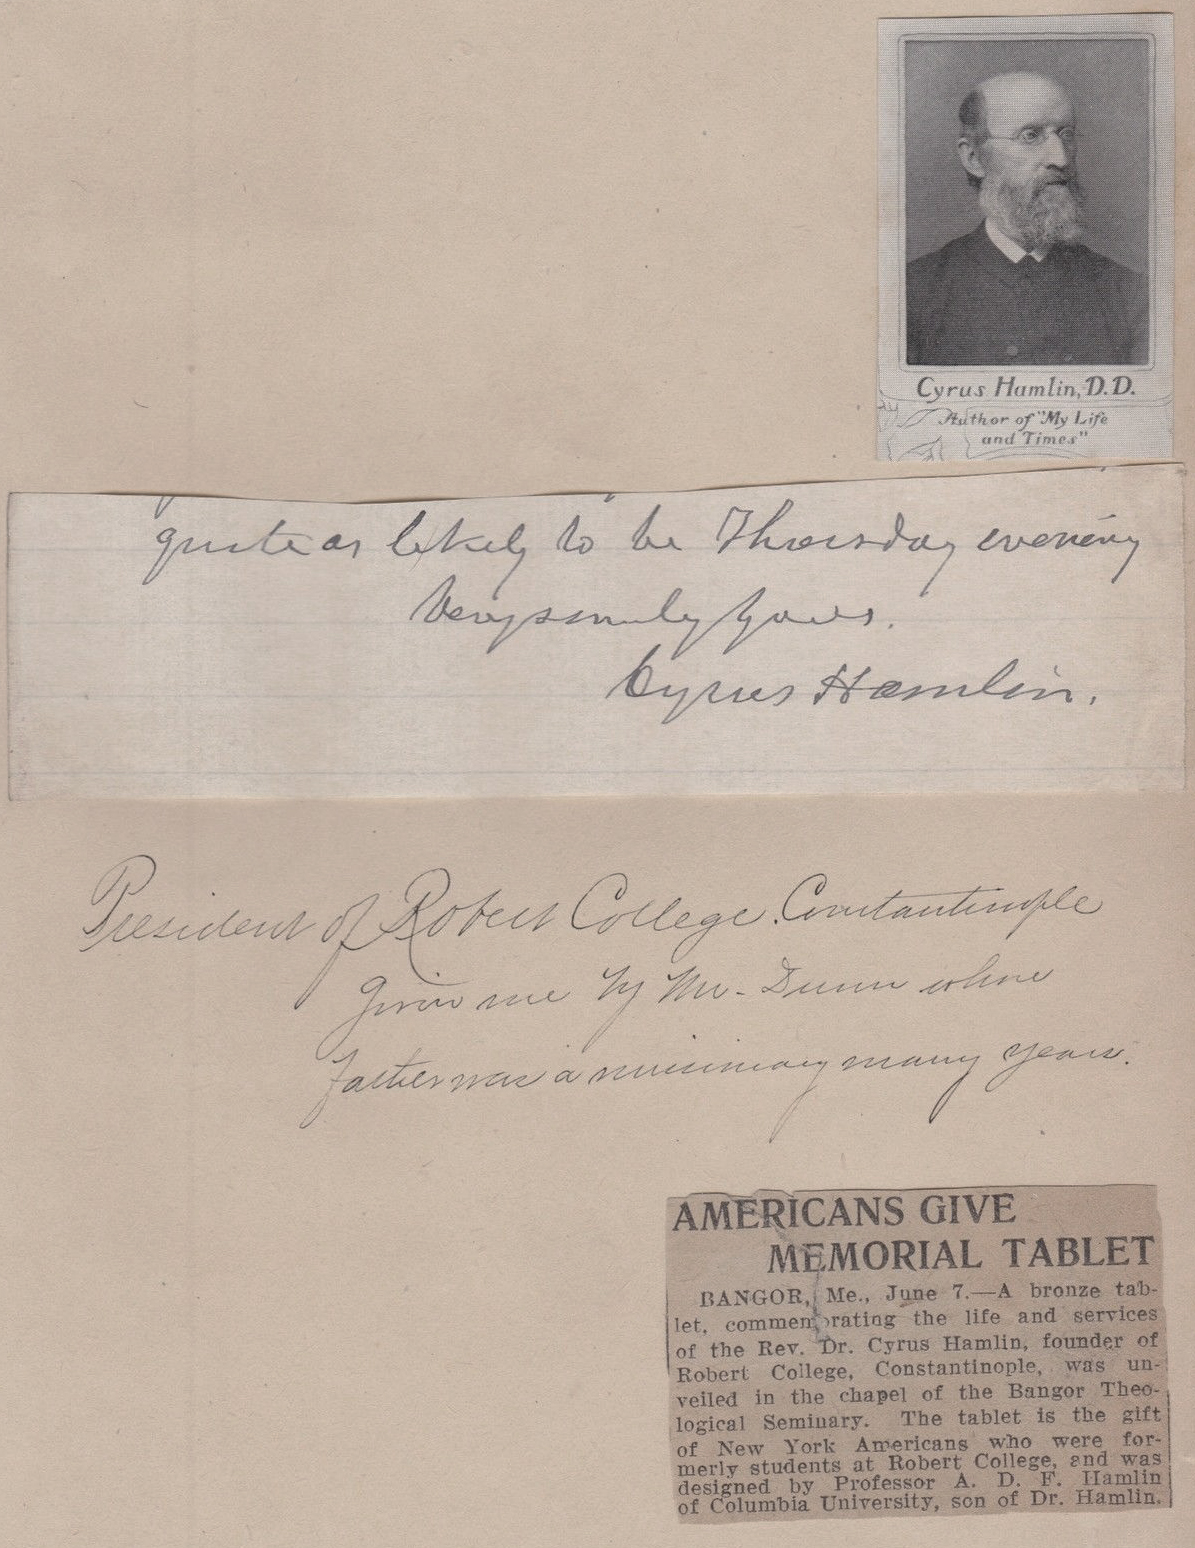 Cyrus Hamlin, D.D.
Author of "My Life
and Times"
quite as likely to be Thursday evening
Very sincerely yours.
Cyrus Hamlin.
President of Robert College. Constantinople
Given me by Mr. Dunn whose
father was a missionary many years.
AMERICANS GIVE
MEMORIAL TABLET
BANGOR, Me., June 7.—A bronze tab-
let, commemorating the life and services
of the Rev. Dr. Cyrus Hamlin, founder of
Robert College, Constantinople, was un-
veiled in the chapel of the Bangor Theo-
logical Seminary. The tablet is the gift
of New York Americans who were for-
merly students at Robert College, and was
designed by Professor A. D. F. Hamlin
of Columbia University, son of Dr. Hamlin.